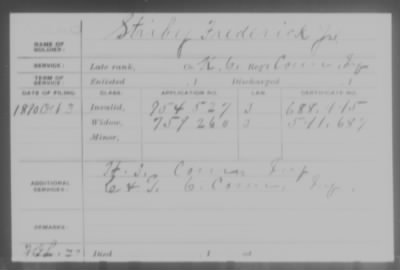 NAME OF SOLDIER: Striby Frederick Jr
SERVICE: Late rank, Co. K, 6 Reg't Conn Inf
TERM OF SERVICE: Enlisted , 1 Discharged , 1
DATE OF FILING. CLASS. APPLICATION NO. LAW. CERTIFICATE NO.
1890 Invalid, 954527 J 688.115
Widow, 759260 511.687
Minor,
ADDITIONAL SERVICES: Conn Inf
C & I. 6. Conn Inf.
REMARKS:
Died , 1 at